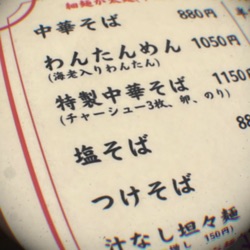 中華そば 880円
わんたんめん 1050円
(海老入りわんたん)
特製中華そば 1150
(チャーシュー3枚、卵、のり)
塩そば 88
つけそば
汁なし坦々麺
150円)